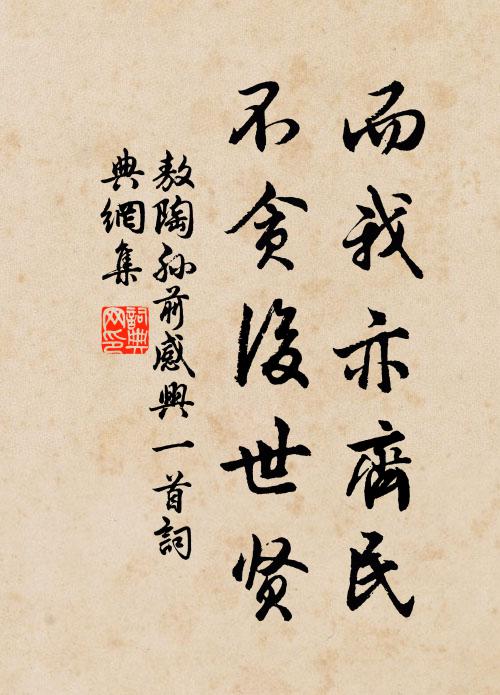 而我亦齊民
不貪後世贤
敖陶孙前感興一首詞
典網集
詞典网印